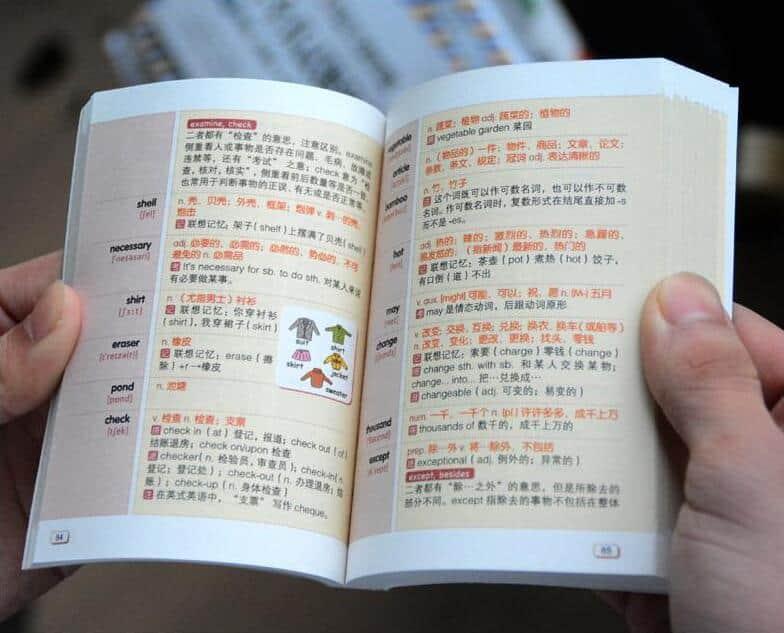 examine, check
二者都有“检查”的意思，注意区别。examine
侧重看人或事物是否存在问题、毛病、故障或
违禁等，还有“考试”之意；check 意为“检
查，核对，核实”，侧重看前后数量等是否一致，
也常用于判断事物的正误、有无或是否正常等。
shell
[ʃel]
n. 壳、贝壳；外壳，框架；炮弹 v. 剥…的壳，
炮击
记 联想记忆：架子（shelf）上摆满了贝壳(shell)
necessary
[ˈnesəsəri]
adj. 必要的、必需的；必然的、势必的，不可
避免的 n. 必需品
考 It's necessary for sb. to do sth. 对某人来说
有必要做某事。
shirt
[ʃɜːt]
n. （尤指男士）衬衫
记 联想记忆：你穿衬衫
(shirt)，我穿裙子(skirt)
suit
shirt
skirt
jacket
sweater
eraser
[ɪˈreɪzə(r)]
n. 橡皮
记 联想记忆：erase（擦
除）+r→橡皮
pond
[pɒnd]
n. 池塘
check
[tʃek]
v. 检查 n. 检查；支票
check in（at）登记，报道；check out（of）
结账退房；check on/upon 检查
checker(n. 检验员，审查员)；check-in(n.
登记；登记处)；check-out（n. 办理退房；结
账）；check-up（n. 身体检查）
注 在英式英语中，“支票”写作 cheque。
84
vegetable
n. 蔬菜；植物 adj. 蔬菜的；植物的
vegetable garden 菜园
article
n. （物品的）一件；物件，商品；文章，论文；
条款，条文，规定；冠词 adj. 表达清晰的
bamboo
n. 竹，竹子
注 这个词既可以作可数名词，也可以作不可数
名词。作可数名词时，复数形式在结尾直接加 -s
而不是 -es。
hot
adj. 热的；辣的；激烈的、热烈的；急躁的、
易发怒的；（指新闻）最新的、热门的
记 联想记忆：茶壶（pot）煮热（hot）饺子，
有口倒（道）不出
may
v. aux. [might] 可能，可以；祝，愿 n. (M-) 五月
考 may 是情态动词，后跟动词原形
change
v. 改变；交换，互换；兑换；换衣、换车（或船等）
n. 改变，变化；更改，更换；找头，零钱
记 联想记忆：索要（charge）零钱（change）
change sth. with sb. 和某人交换某物；
change... into... 把…兑换成…
changeable（adj. 可变的；易变的）
thousand
num. 一千，一千个 n. [pl.] 许许多多，成千上万
thousands of 数千的，成千上万的
except
prep. 除…外 v. 将…除外，不包括
exceptional（adj. 例外的；异常的）
except, besides
二者都有“除…之外”的意思，但是所除去的
部分不同。except 指除去的事物不包括在整体
85